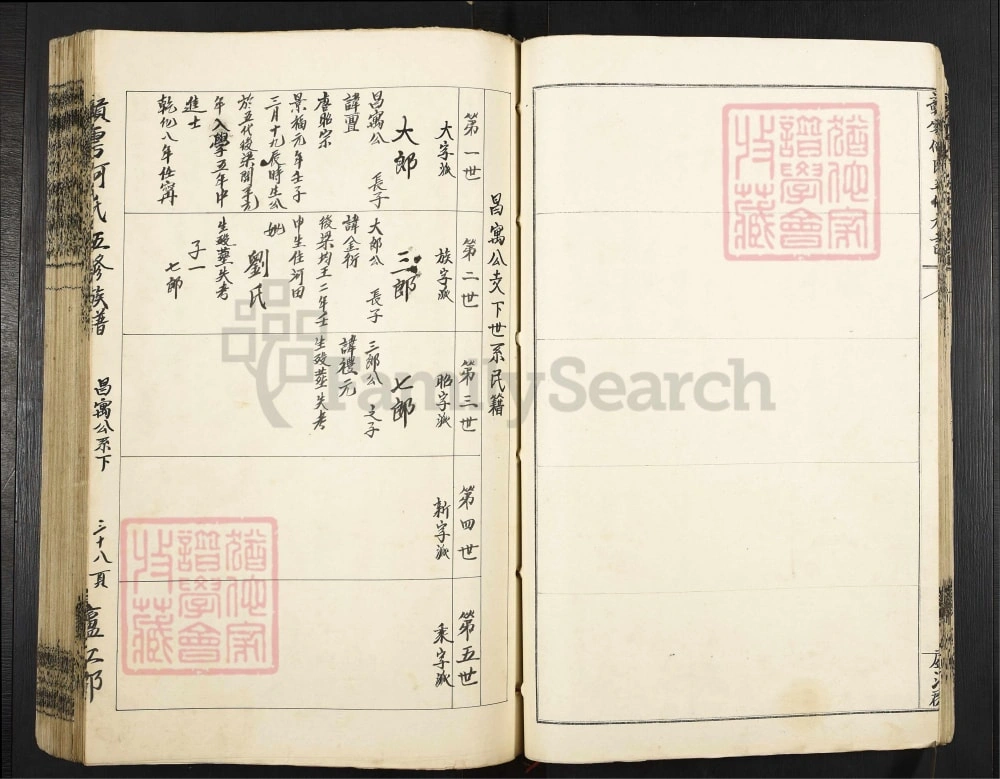 昌寓公支下世系民籍
第一世
大字派
大郎
昌寓公 長子
諱亶
唐昭宗
景福元年壬子
三月十九辰時生公
於五代後梁開平元
年入學五年中
進士
乾化八年任寧
第二世
族字派
三郎
大郎公 長子
諱金衍
後梁均王二年壬
申生住河田
妣
劉氏
生歿葬失考
子一
七郎
第三世
昭字派
七郎
三郎公 之子
諱禮元
生歿葬失考
第四世
新字派
第五世
秉字派
何氏五修族譜
昌寓公系下
三十八頁
廬江郡
FamilySearch
譜學會
收藏
譜學會
收藏